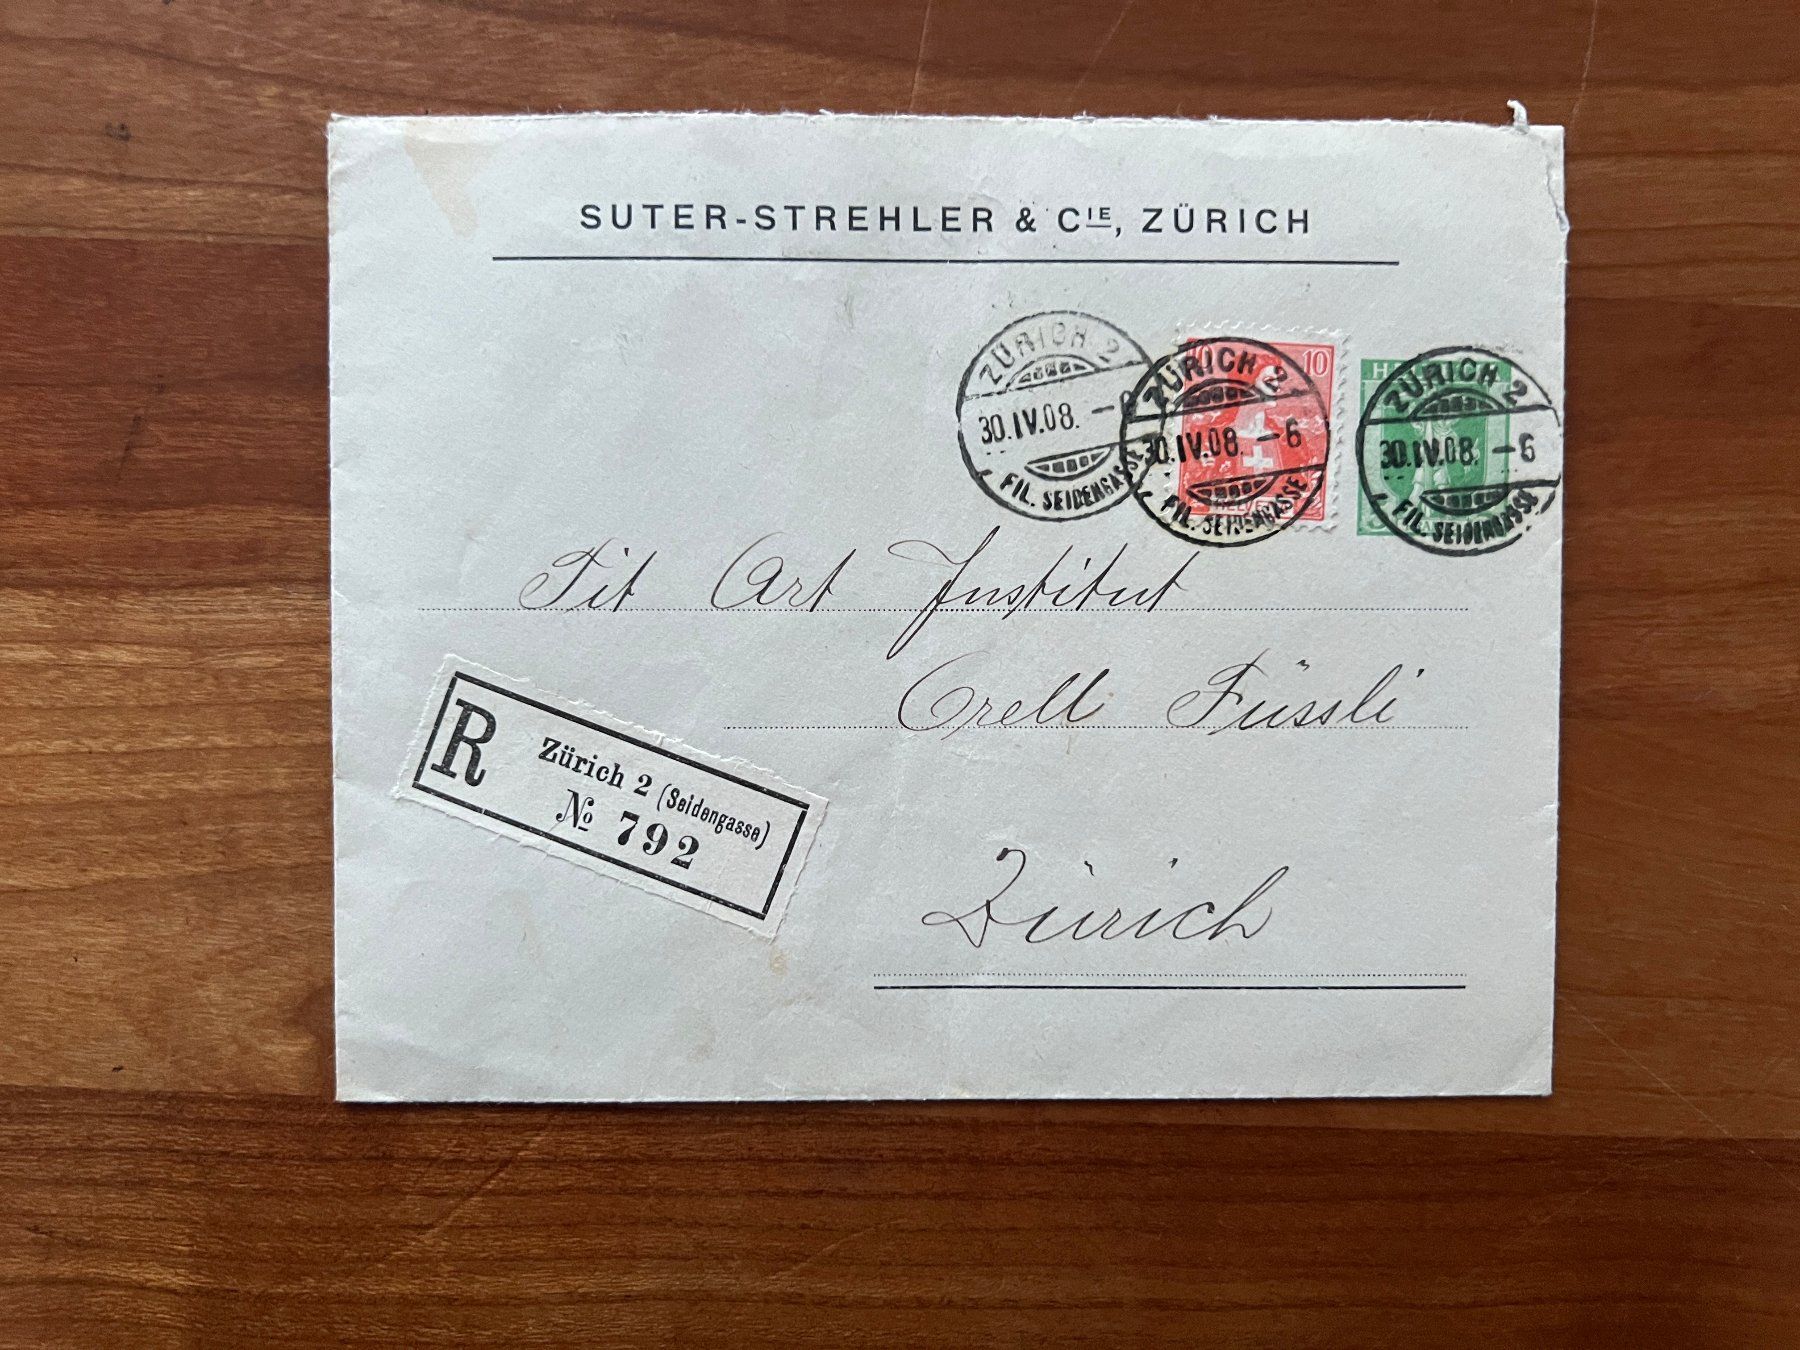 SUTER-STREHLER & CIE, ZÜRICH
ZÜRICH 2
30.IV.08. –
FIL. SEIDENGASSE
10
ZÜRICH 2
30.IV.08. – 6
FIL. SEIDENGASSE
ZÜRICH 2
30.IV.08. – 6
FIL. SEIDENGASSE
Tit Art Institut
Orell Füssli
R
Zürich 2 (Seidengasse)
№ 792
Zürich